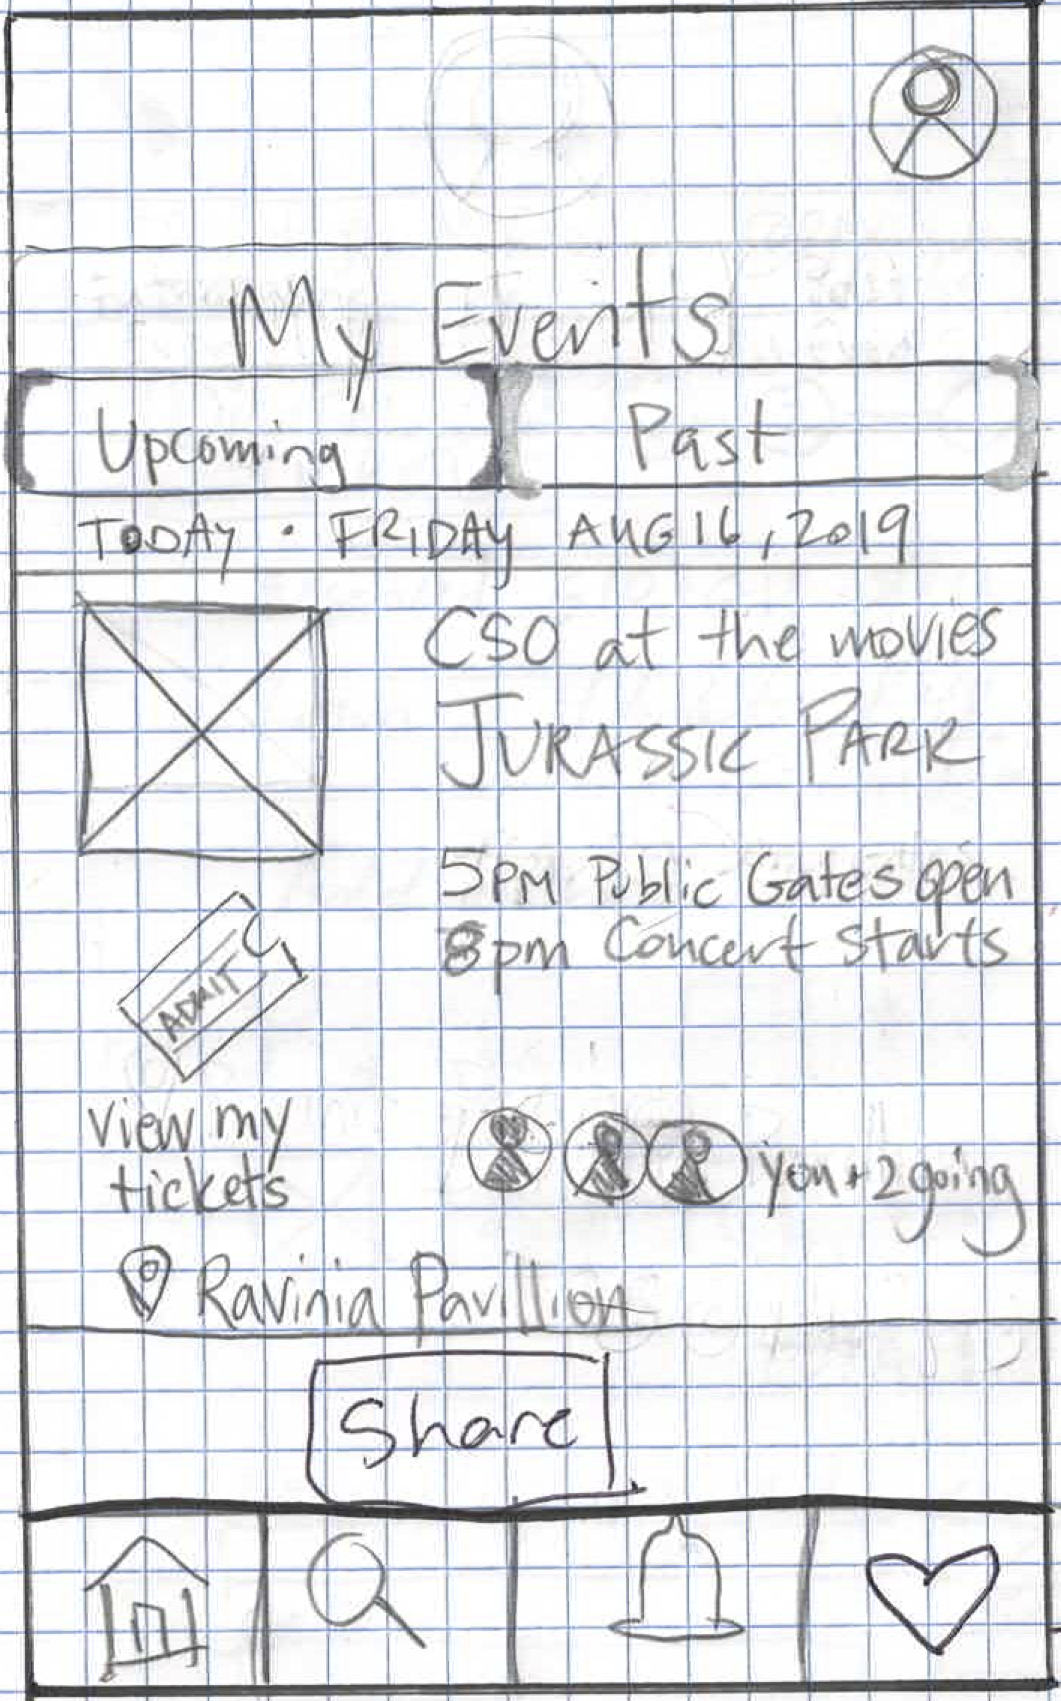 My Events
Upcoming Past
TODAY · FRIDAY AUG 16, 2019
CSO at the movies
JURASSIC PARK
5PM Public Gates open
8pm Concert Starts
ADMIT
view my
tickets
you + 2 going
Ravinia Pavillion
Share